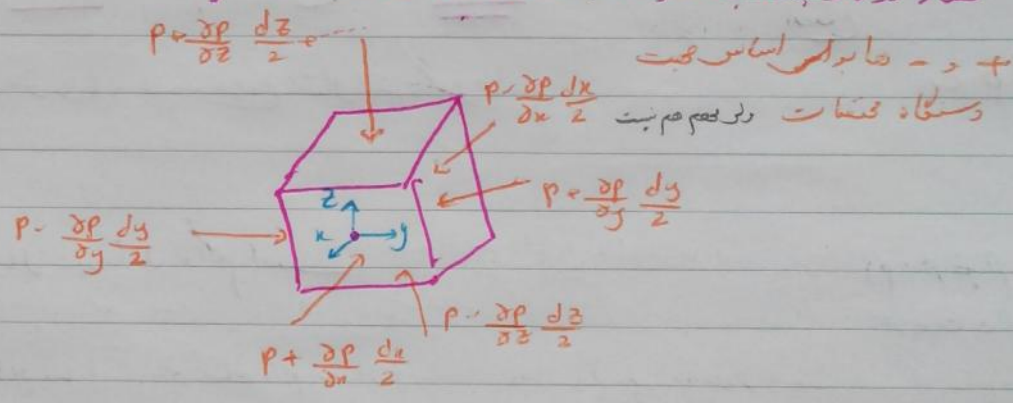 p + ∂p/∂z dz/2 + ....
+ و - ها براساس جهت
p - ∂p/∂x dx/2
دستگاه مختصات ولی مهم هم نیست
p + ∂p/∂y dy/2
z
p - ∂p/∂y dy/2
x y
p - ∂p/∂z dz/2
p + ∂p/∂x dx/2